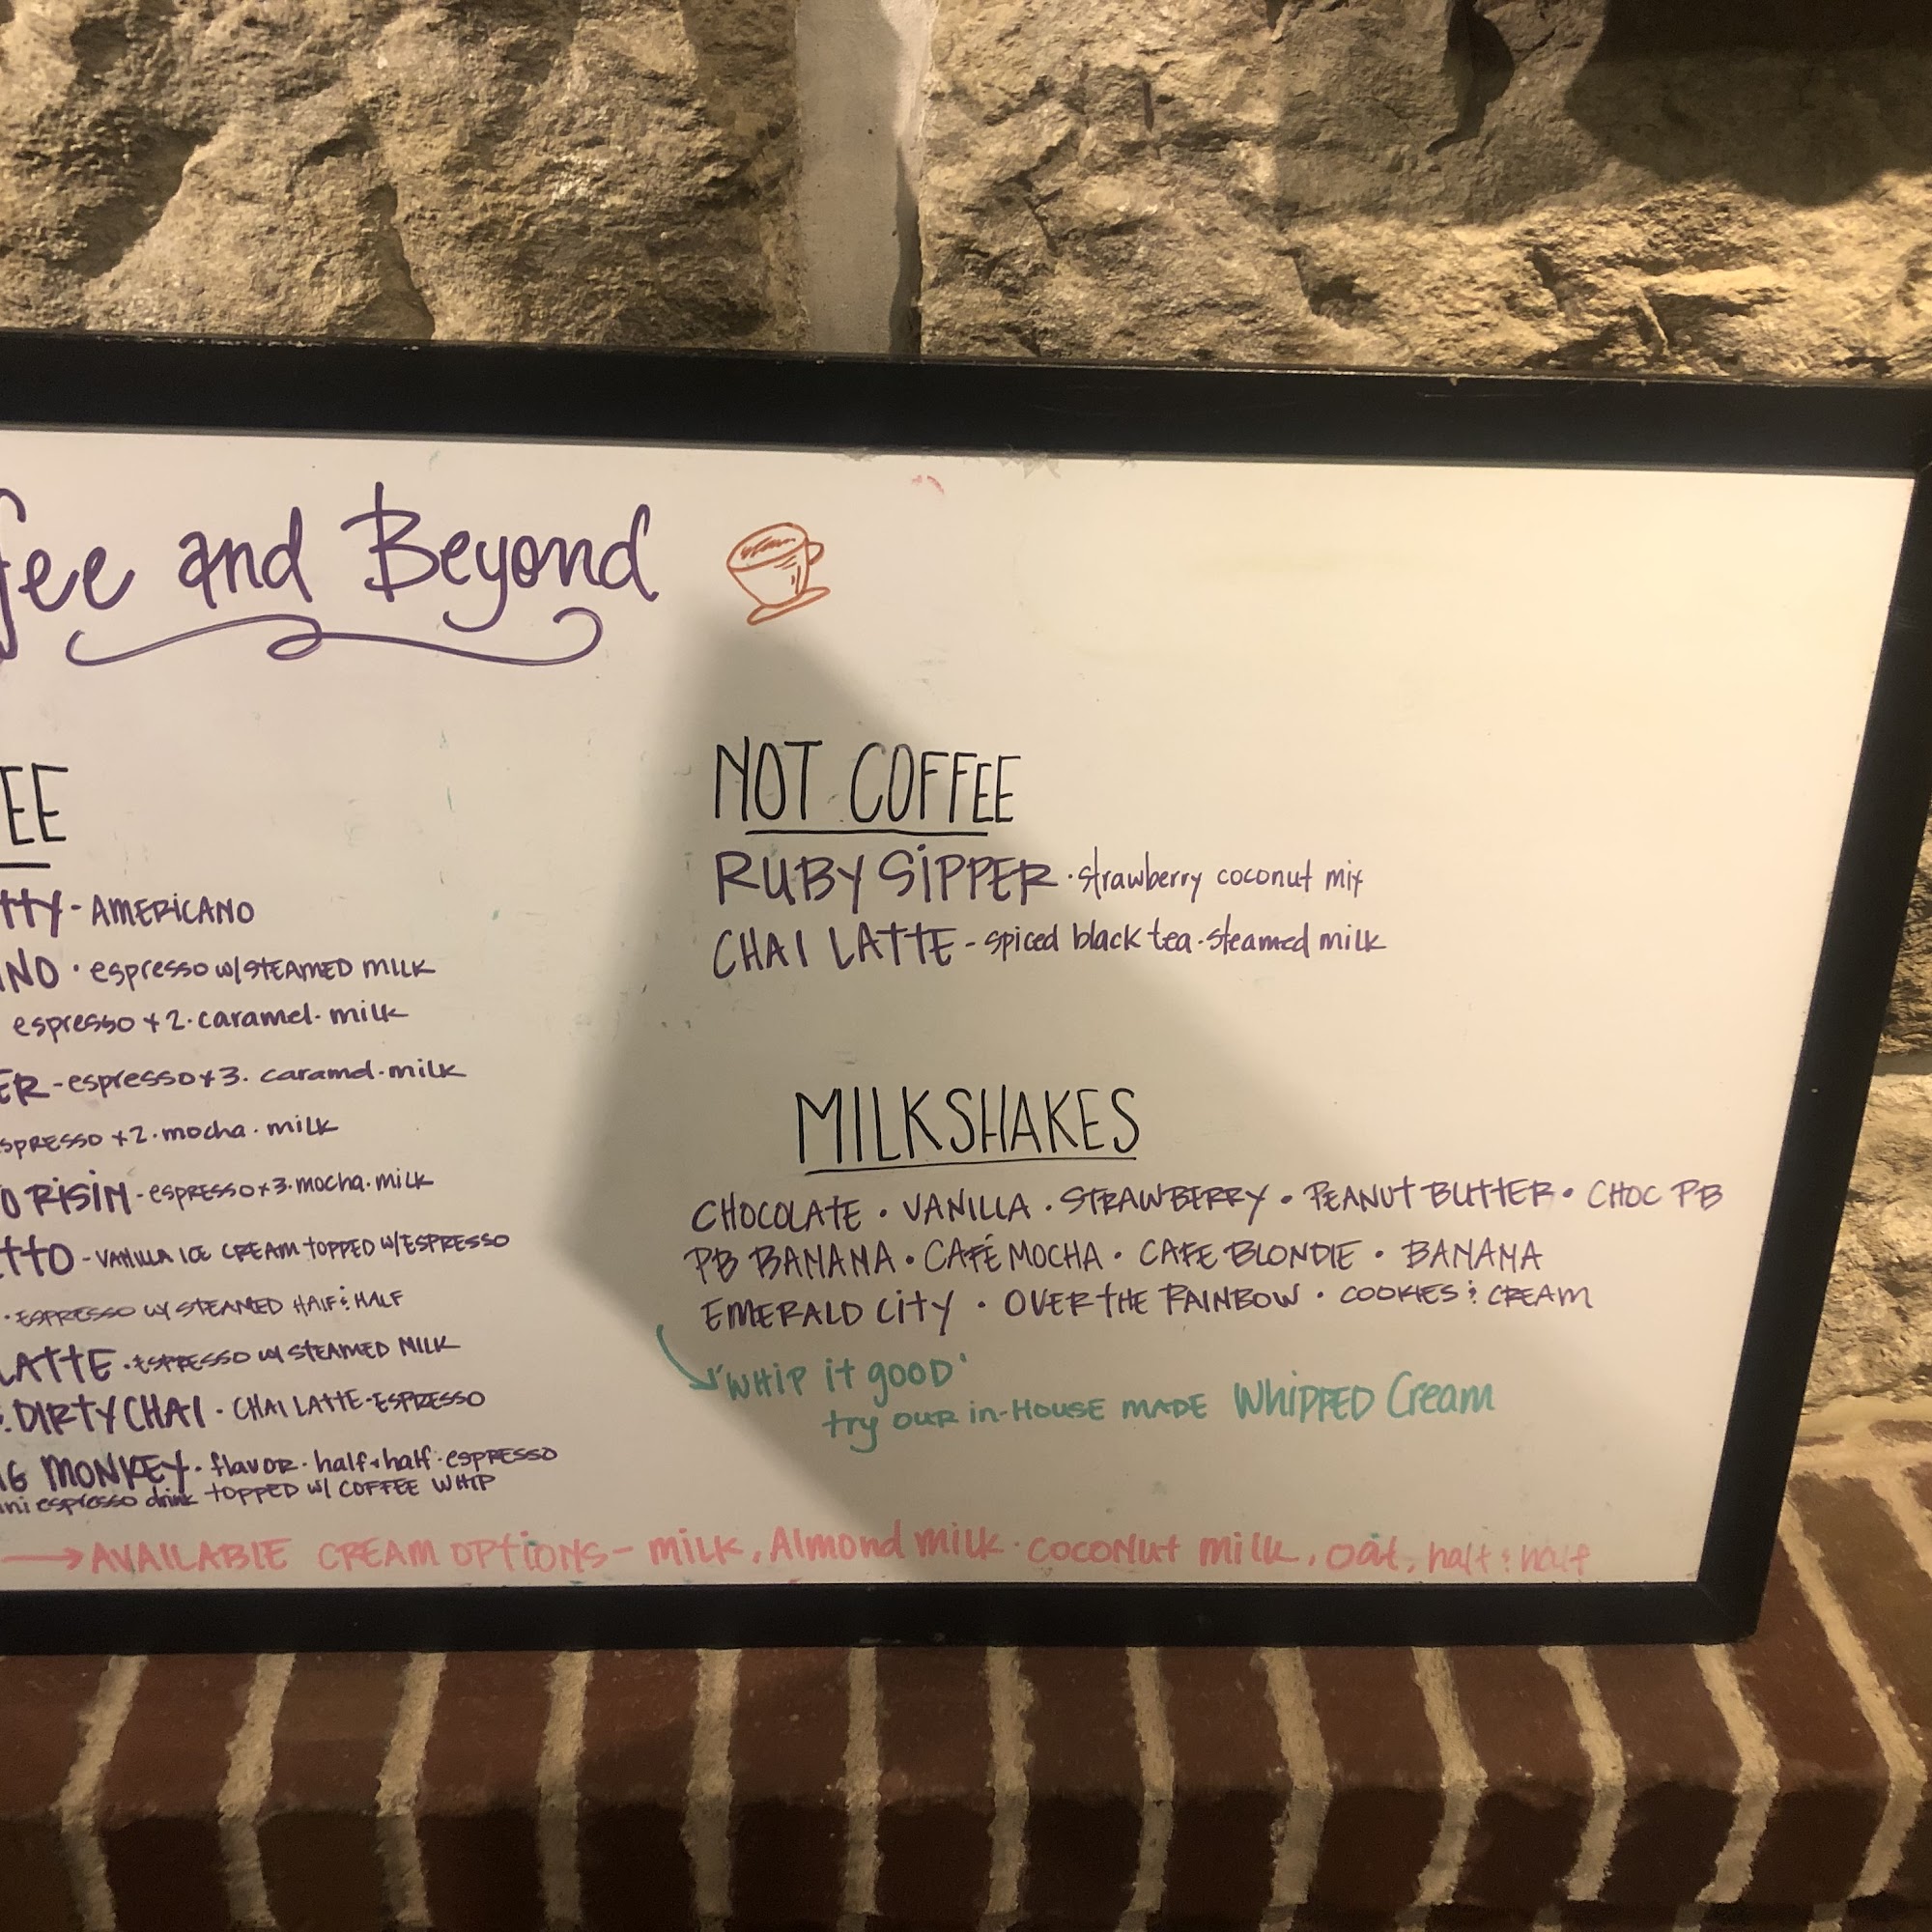 fee and Beyond
EE
tty - AMERICANO
NO · espresso w/ STEAMED MILK
espresso x 2 · caramel · milk
ER - espresso x 3 · caramel · milk
SPRESSO x 2 · mocha · milk
O RISIN - ESPRESSO x 3 · mocha · milk
tto - VANILLA ICE CREAM TOPPED W/ ESPRESSO
· ESPRESSO W/ STEAMED HALF & HALF
LATTE · ESPRESSO W/ STEAMED MILK
. DIRTY CHAI · CHAI LATTE · ESPRESSO
G MONKEY · flavor · half & half · espresso
ini espresso drink TOPPED W/ COFFEE WHIP
NOT COFFEE
RUBY SIPPER · strawberry coconut mix
CHAI LATTE - spiced black tea · steamed milk
MILKSHAKES
CHOCOLATE · VANILLA · STRAWBERRY · PEANUT BUTTER · CHOC PB
PB BANANA · CAFÉ MOCHA · CAFE BLONDIE · BANANA
EMERALD CITY · OVER THE RAINBOW · COOKIES & CREAM
'WHIP it good'
try OUR in-HOUSE MADE WHIPPED Cream
→ AVAILABLE CREAM OPTIONS - milk, Almond milk · coconut milk, oat, half & half